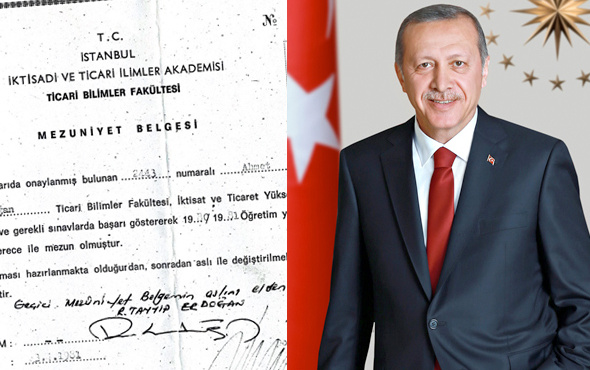 No
T. C.
İSTANBUL
İKTİSADİ VE TİCARİ İLİMLER AKADEMİSİ
TİCARİ BİLİMLER FAKÜLTESİ
MEZUNİYET BELGESİ
arıda onaylanmış bulunan ...2443... numaralı ...Ahmet
ğan ............ Ticari Bilimler Fakültesi, İktisat ve Ticaret Yükse
ve gerekli sınavlarda başarı göstererek 19 19 Öğretim y
erece ile mezun olmuştur.
ması hazırlanmakta olduğundan, sonradan aslı ile değiştirilme
tir.
Geçici Mezuniyet Belgenin aslını elden
R. TAYYİP ERDOĞAN
M : ....--...--
1981